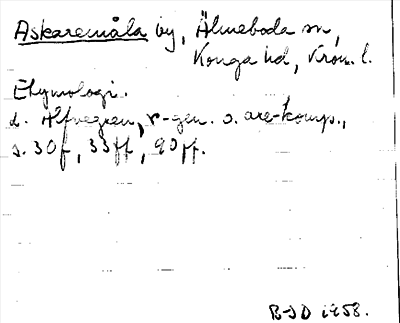 Askaremåla by, Älmeboda sn,
Konga hd, Kron. l.
Etymologi.
L. Alfvegren, r-gen. o. are-komp.,
s. 30 f, 33 ff, 90 ff.
B-JD 1958.